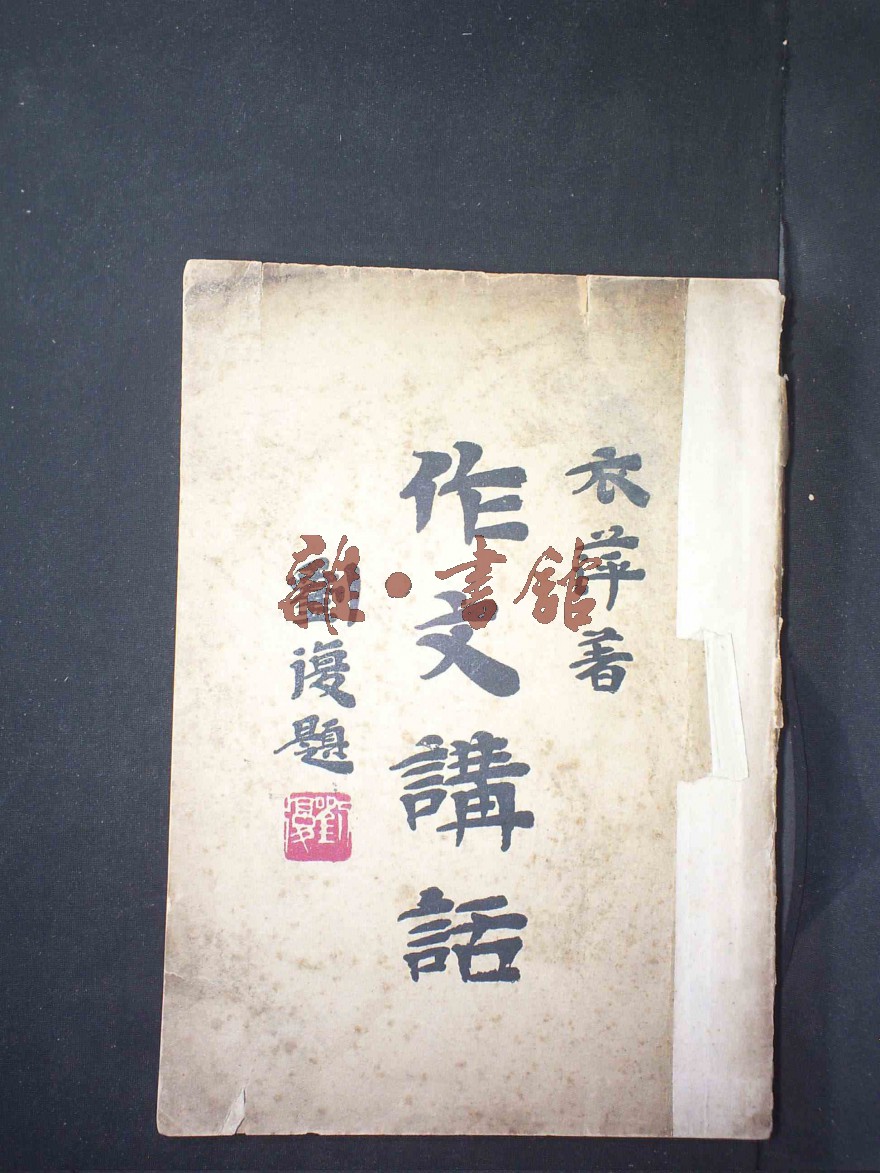 衣萍著
作文講話
劉復題
劉復
雜·書館